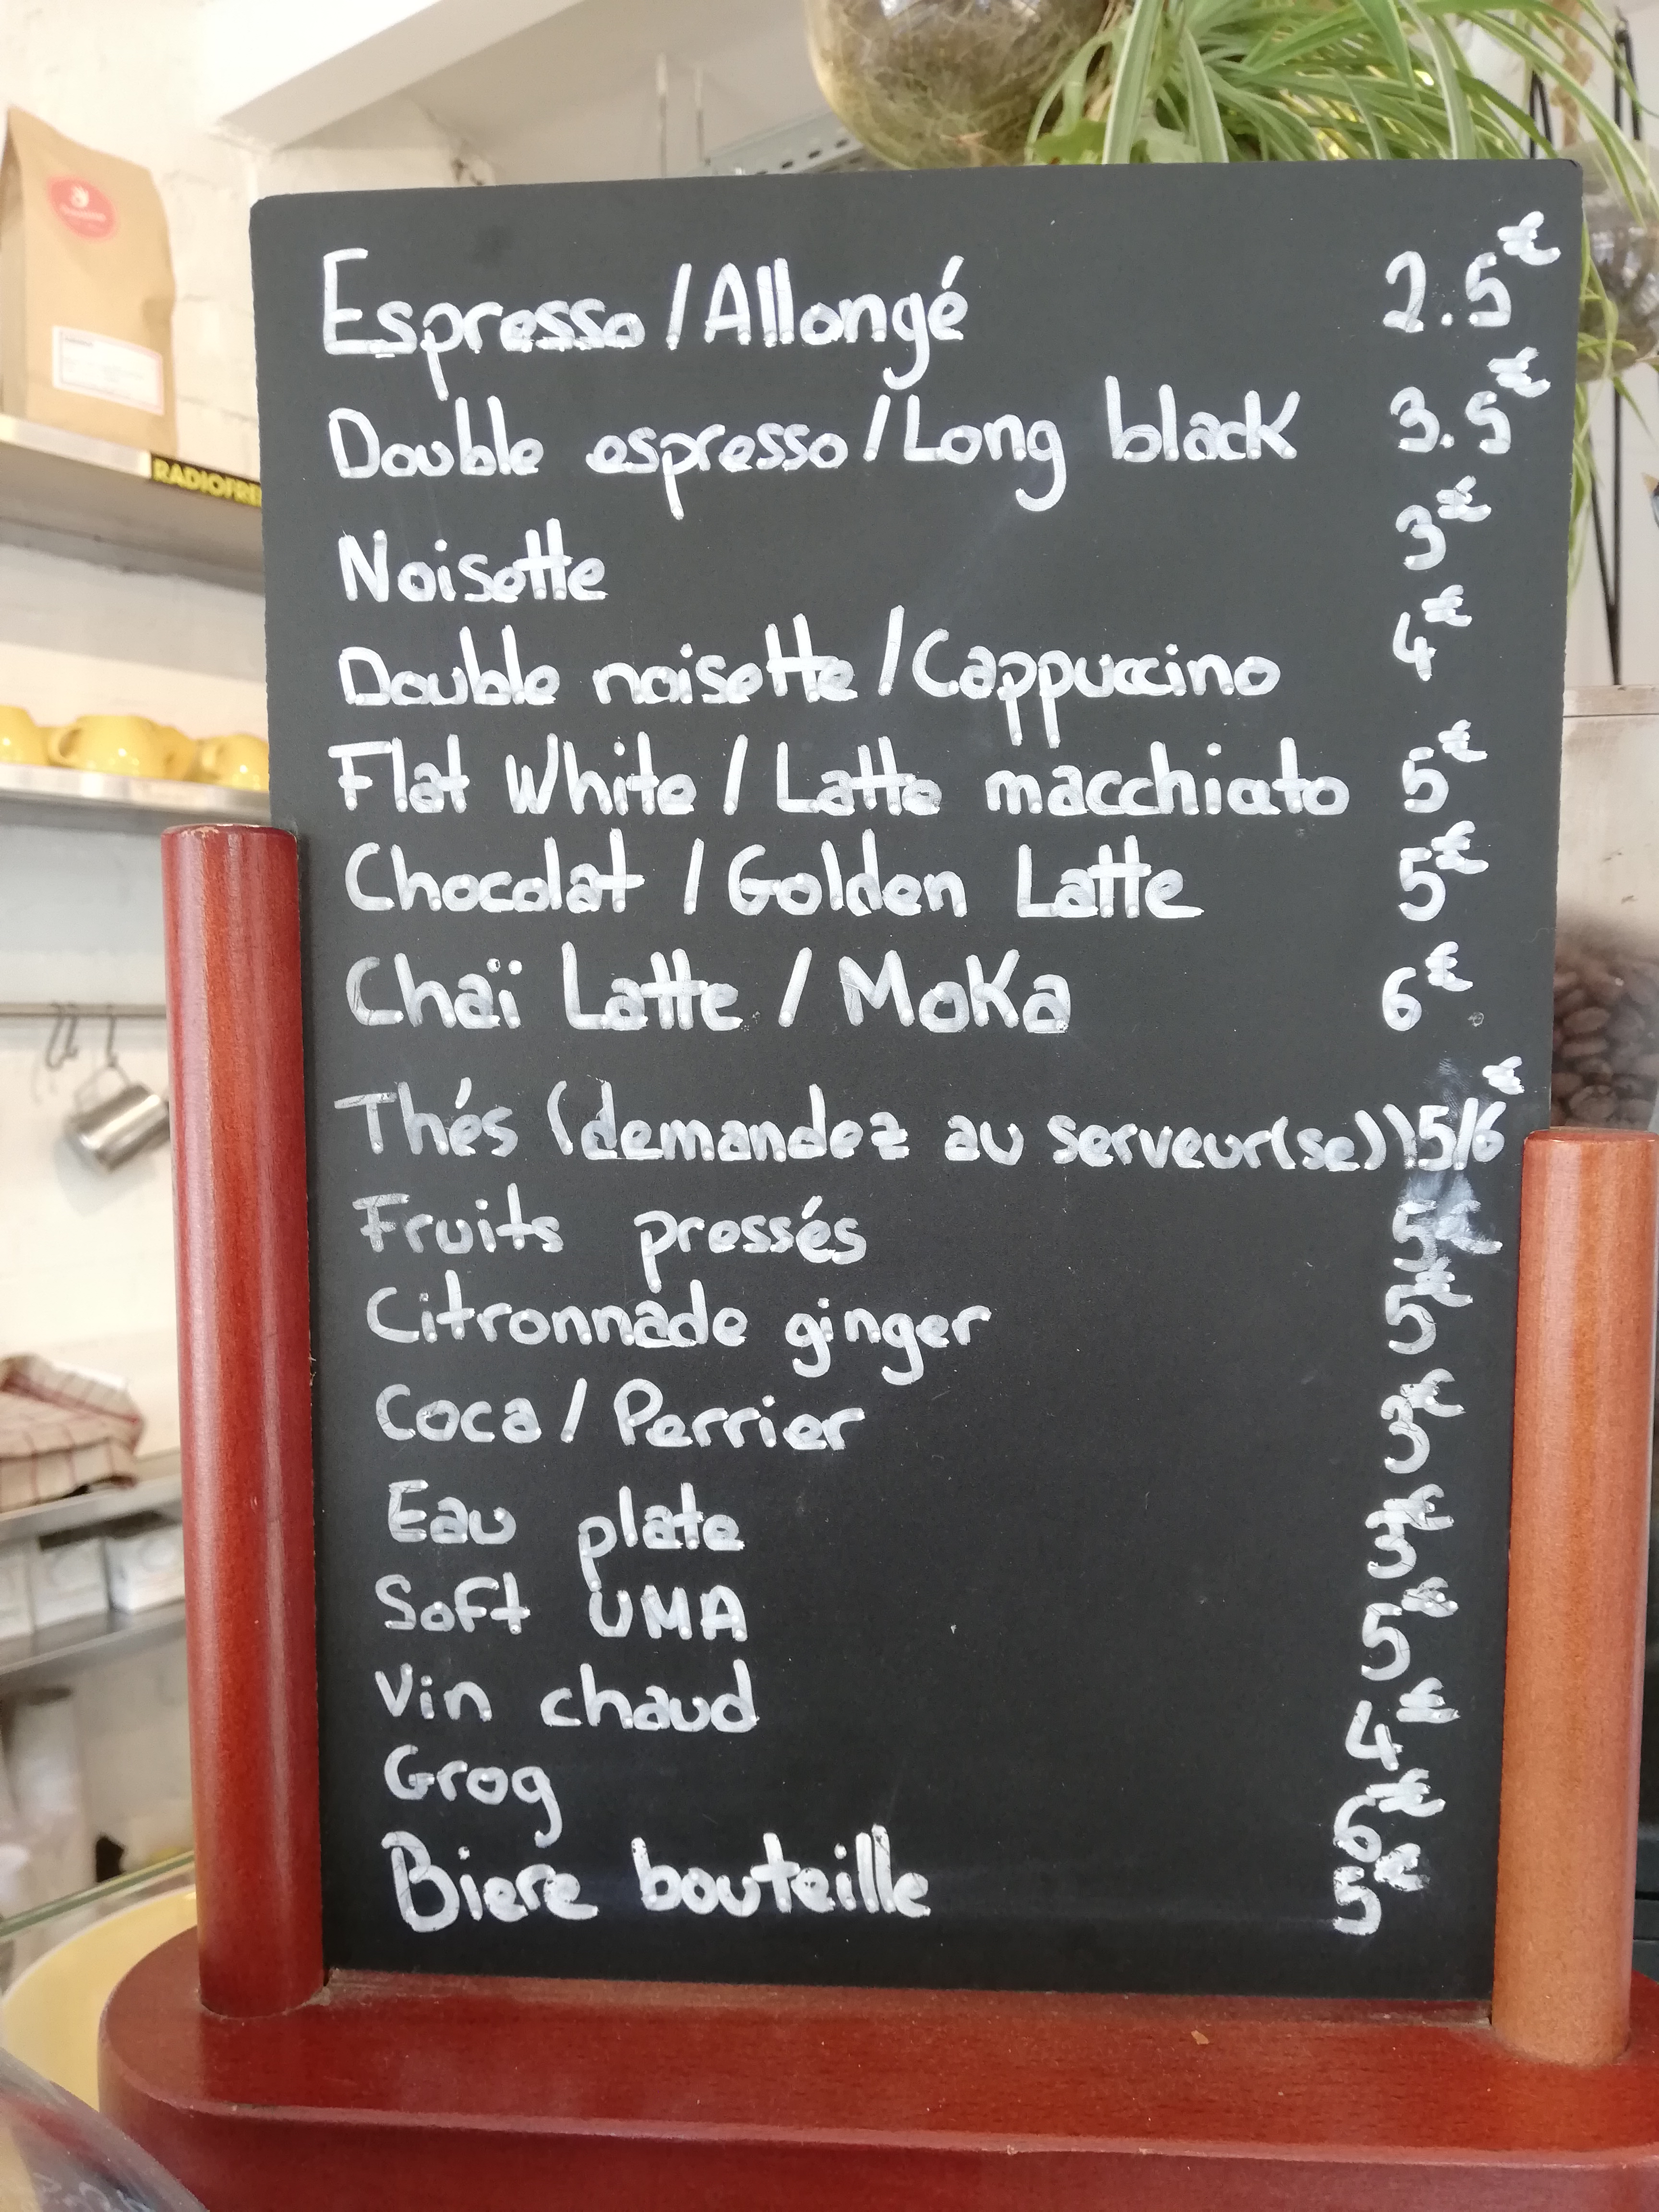 Espresso / Allongé 2.5€
Double espresso / Long black 3.5€
Noisette 3€
Double noisette / Cappuccino 4€
Flat White / Latte macchiato 5€
Chocolat / Golden Latte 5€
Chaï Latte / Moka 6€
Thés (demandez au serveur(se)) 5/6€
Fruits pressés 5€
Citronnade ginger 5€
Coca / Perrier 3€
Eau plate 3€
Soft UMA 5€
Vin chaud 4€
Grog 6€
Biere bouteille 5€
RADIOFRE